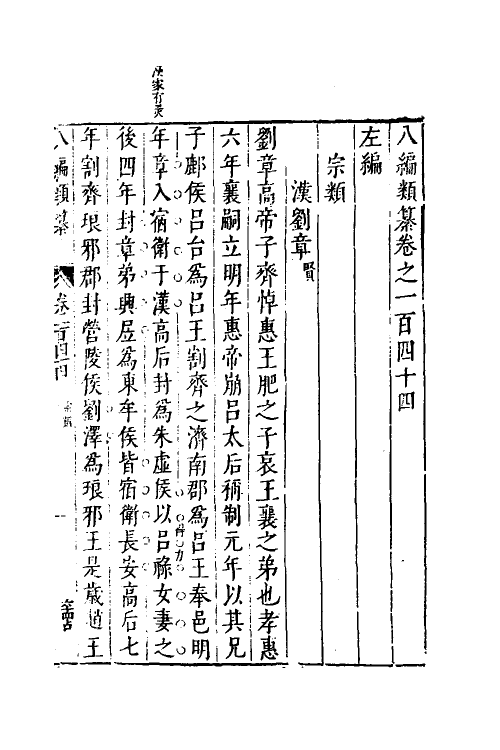 八編類纂卷之一百四十四
左編
宗類
漢劉章 賢
劉章高帝子齊悼惠王肥之子哀王襄之弟也孝惠
六年襄嗣立明年惠帝崩呂太后稱制元年以其兄
子酈侯呂台為呂王割齊之濟南郡為呂王奉邑明
年章入宿衛于漢高后封為朱虛侯以呂祿女妻之
後四年封章弟興居為東牟侯皆宿衛長安高后七
年割齊琅邪郡封營陵侯劉澤為琅邪王是歲趙王
八編類纂
卷一百四十四
宗類
一